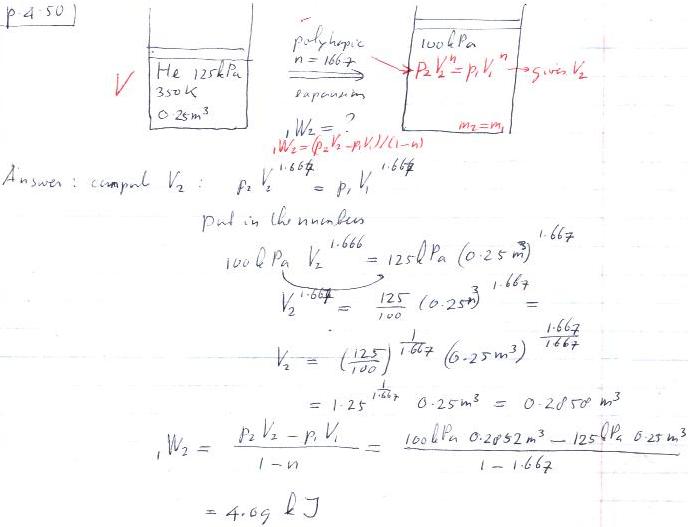 p.4.50)
He 125kPa
350K
0.25m³
V
polytropic
n = 1667
expansion
₁W₂ = ?
₁W₂=(p₂V₂-p₁V₁)/(1-n)
100kPa
p₂V₂ⁿ = p₁V₁ⁿ → gives V₂
m₂=m₁
Answer: comput V₂ : p₂ V₂^1.667 = p₁ V₁^1.667
put in the numbers
100kPa V₂^1.666 = 125kPa (0.25m³)^1.667
V₂^1.667 = 125/100 (0.25m³)^1.667 =
V₂ = (125/100)^(1/1.667) (0.25m³)^(1.667/1.667)
= 1.25^(1/1.667) 0.25m³ = 0.2858 m³
₁W₂ = (p₂V₂ - p₁V₁)/(1-n) = (100kPa 0.2852m³ - 125kPa 0.25m³)/(1 - 1.667)
= 4.09 kJ